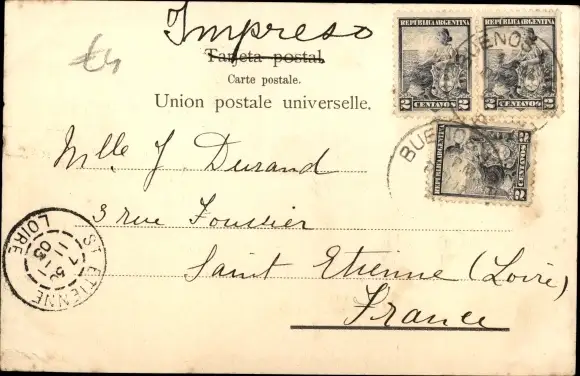 Impreso
Tarjeta postal.
Carte postale.
Union postale universelle.
REPÚBLICA ARGENTINA
2 CENTAVOS 2
REPÚBLICA ARGENTINA
2 CENTAVOS 2
REPÚBLICA ARGENTINA
2 CENTAVOS 2
BUENOS
BUENOS
Mlle J Durand
3 rue Foussier
Saint Etienne (Loire)
France
ST ETIENNE
7 50
11
03
LOIRE